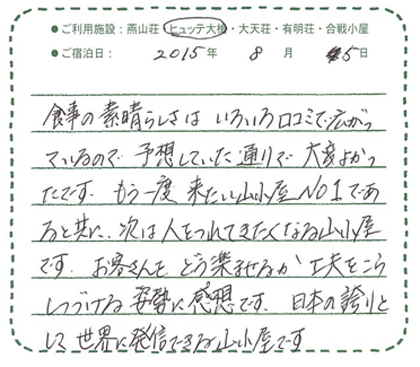 ●ご利用施設：燕山荘・ヒュッテ大槍・大天荘・有明荘・合戦小屋
●ご宿泊日： 2015年 8月 5日
食事の素晴らしさは いろいろ口コミで広がっ
ているので 予想していた通りで 大変よかっ
たです。もう一度 来たい山小屋NO1であ
ると共に、次は人をつれてきたくなる山小屋
です。お客さんを どう楽ませるか 工夫をこら
しつづける 姿勢に感想です。日本の誇りと
して 世界に発信できる山小屋です